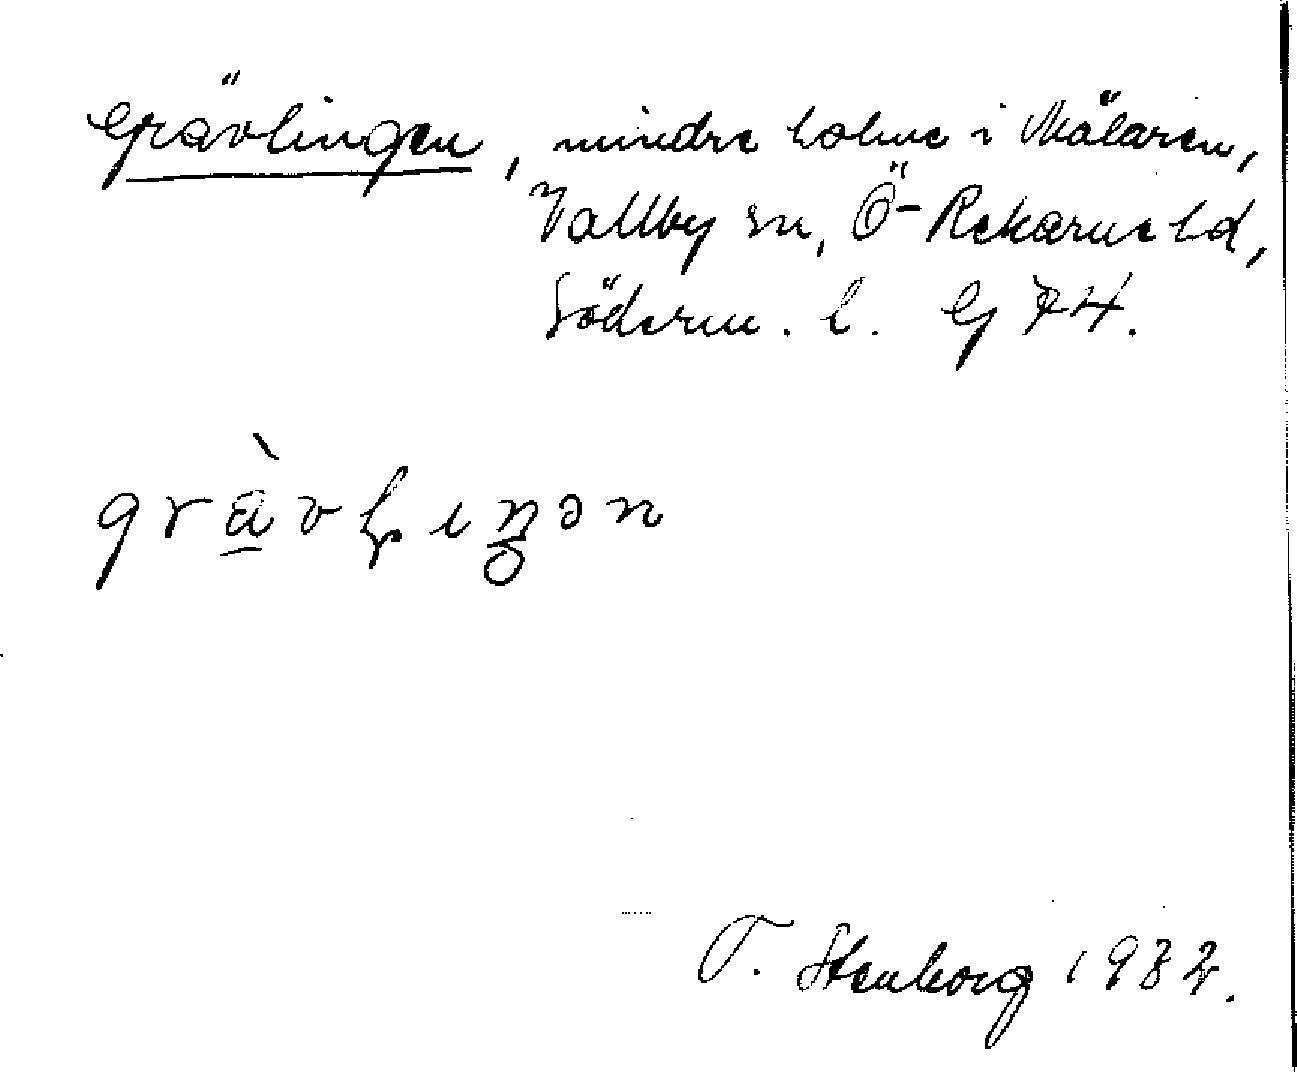 Grävlingen, mindre holme i Mälaren,
Vallby sn, Ö-Rekarne hd,
Söderm. l. G 74.
grä̀vlıŋən
T. Stenborg 1932.